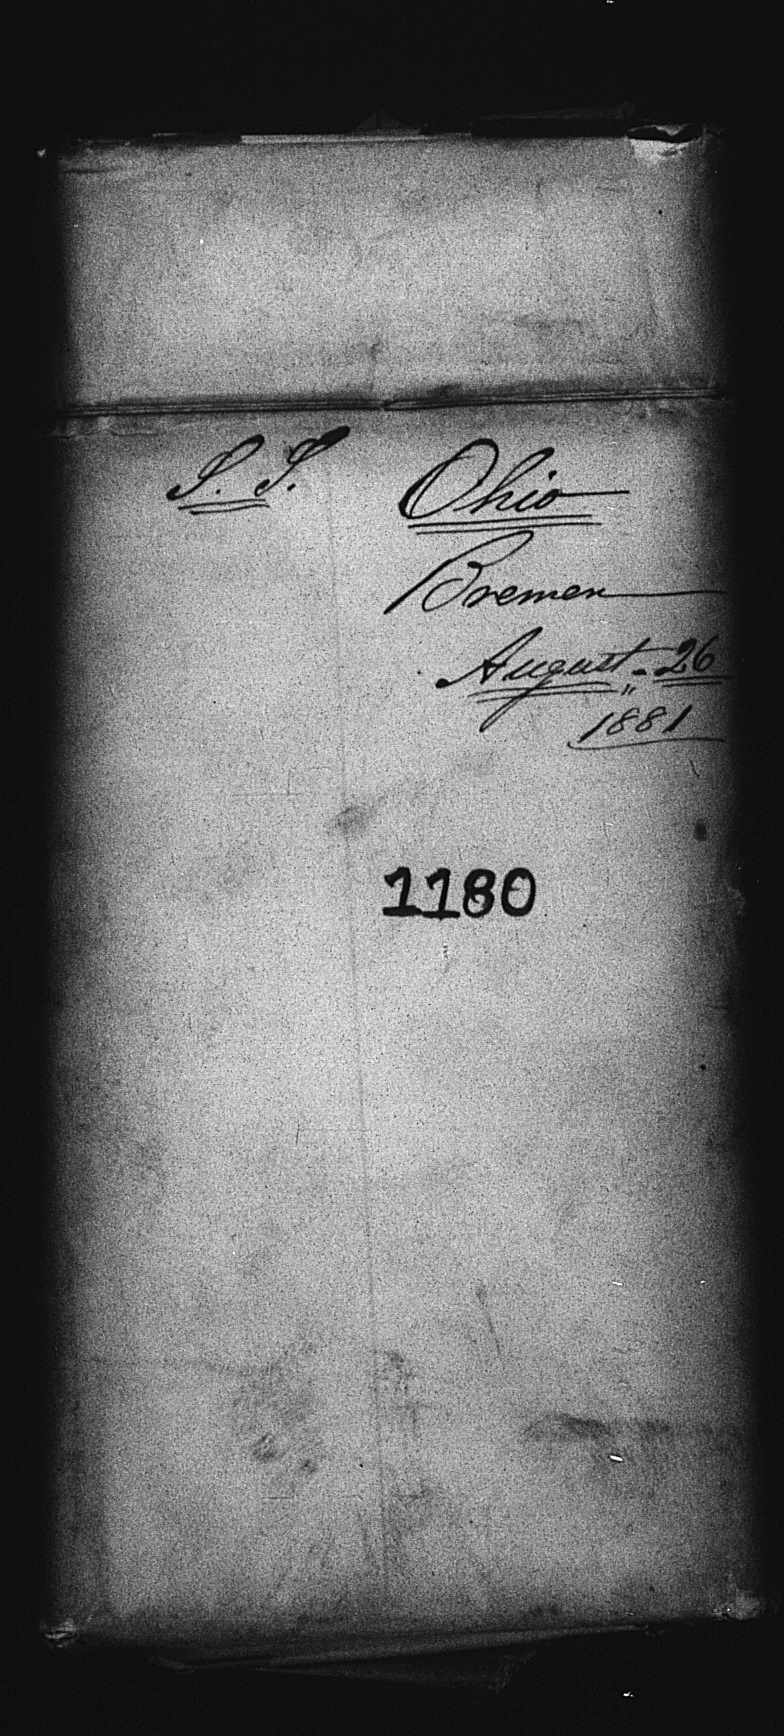 S. S. Ohio
Bremen
August - 26
1881
1180